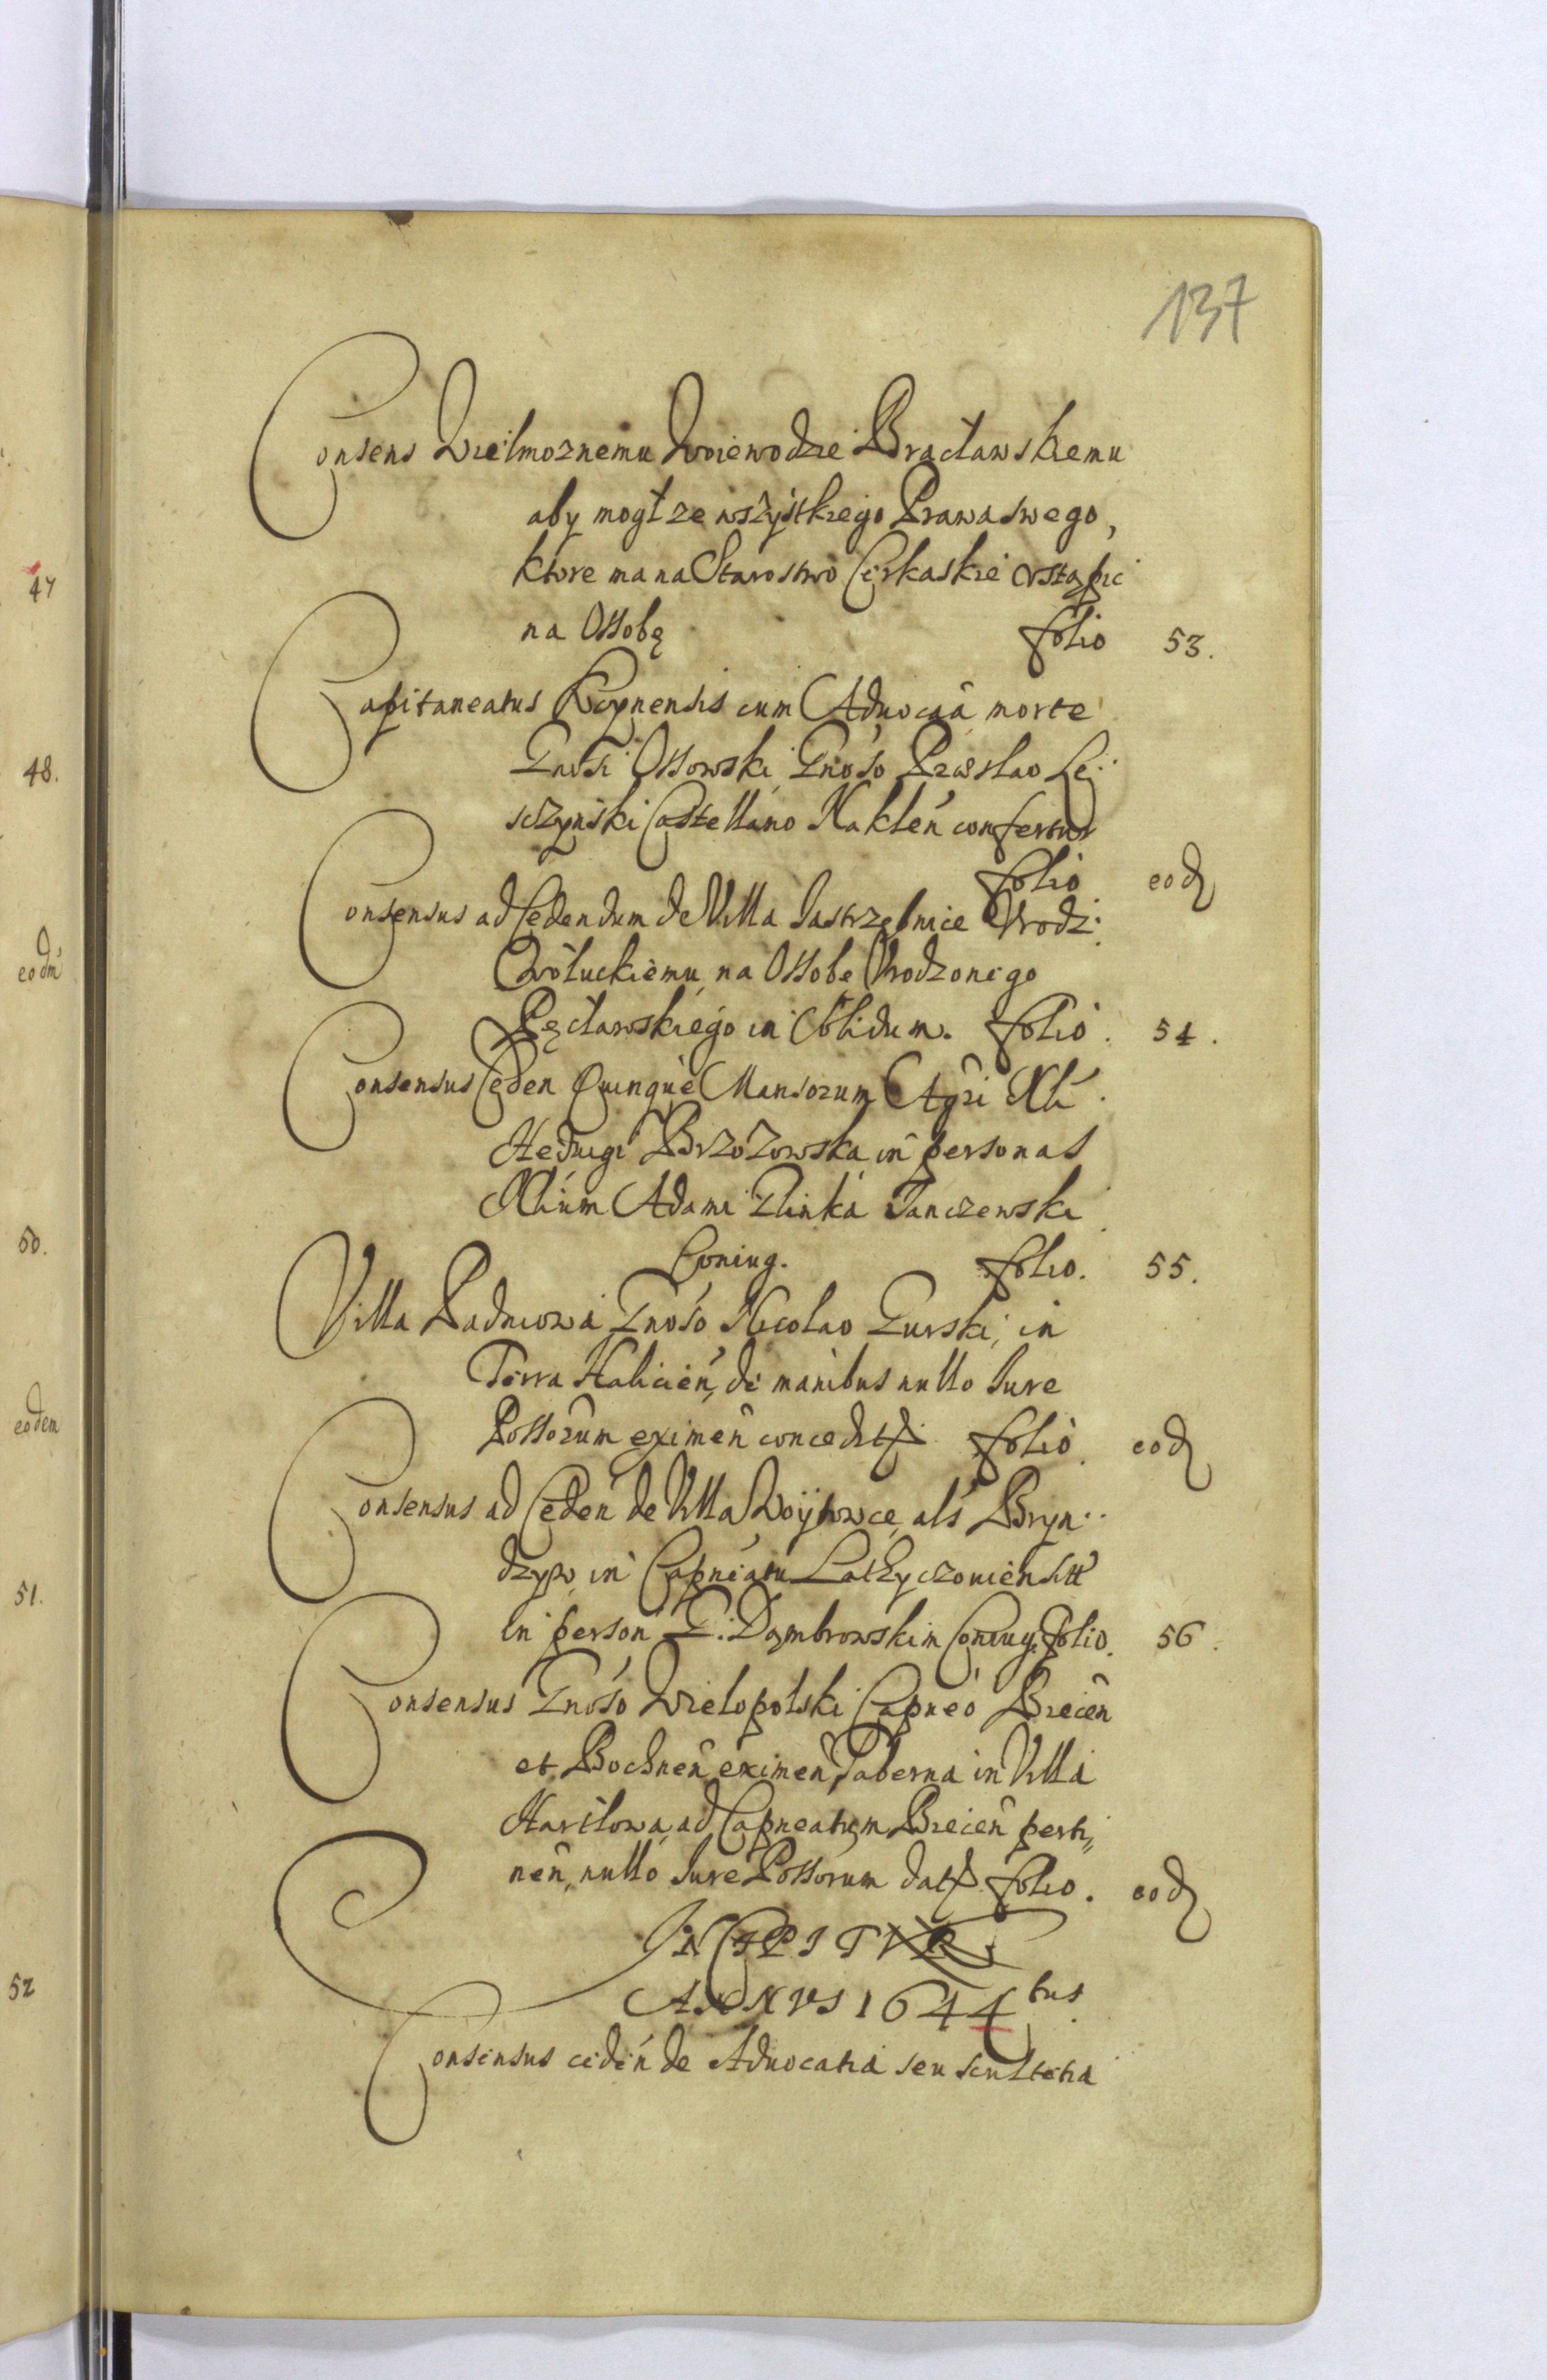 137
Consens Wielmoznemu Woiewodzie Bracławskiemu
aby mogł ze wszystkiego Prawa swego,
ktore ma na Starostwo Cirkaskie vstąpic
na Ossobę folio 53.
Capitaneatus Kcynensis cum Aduocaã morte
Gnosi Ossowski Gnoso Przeslao Le
sczynski Castellano Naklen̄ confertur
folio eod
Consensus ad Cedendum de Villa Jastrzębnice Vrodz:
Wołuckiemu na Ossobę Vrodzonego
Pęcławskiego in Solidum. folio. 54.
Consensus Ceden Quinque Mansorum Agri Nli
Hedvigi Brzozowska in personas
Nlium Adami Glinka Janczewski
Coniug. folio. 55.
Villa Padniowa Gnoso Nicolao Gurski, in
Terra Halicien, de manibus nullo Jure
Possorum eximen conceditr folio. eod
Consensus ad Ceden de Villa Woijtowce als Bryn
dzypo in Capneatu Latyczouiensitt
in person G. Dąmbrowskim Coniug. folio. 56.
Consensus Gnoso Wielopolski Capneo Biecen
et Bochnen eximen Taberna in Villa
Harklowa ad Capneatum Biecen perti,,
nen, nullo Jure Possorum datr folio. eod
INCIPITVR
ANNVS 1644tus.
Consensus ceden de Aduocatia seu scultetia
47
48.
eodm
50.
eodem
51.
52